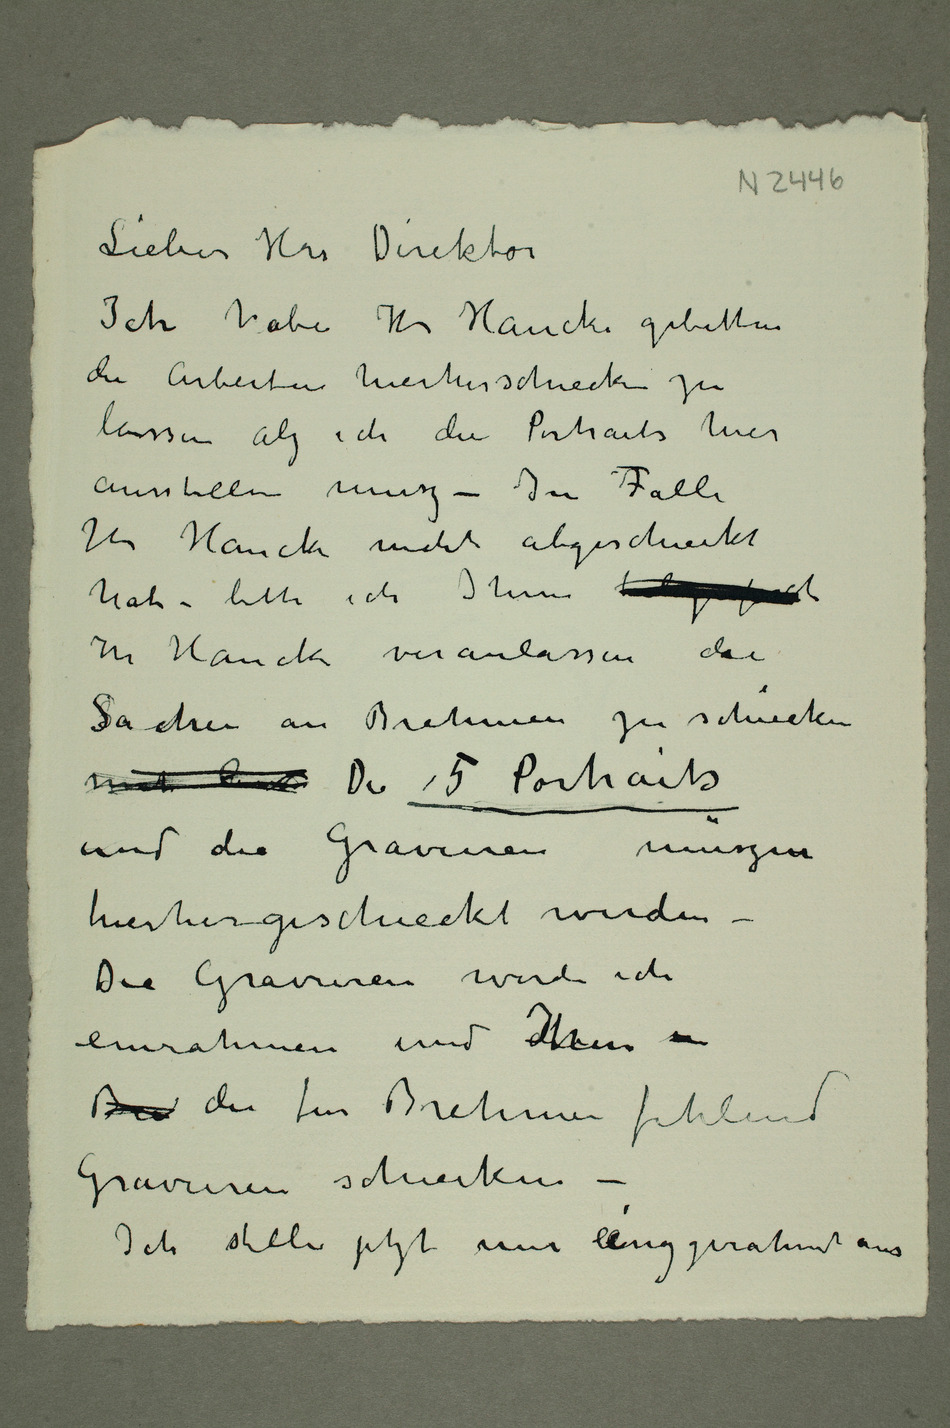 N 2446
Lieber Herr Direktor
Ich habe Hr Haucke gebetten
die Arbeiten hierherschiecken zu
lassen alz ich die Portraits hier
ausstellen musz – Im Falle
Hr Haucke nicht abgeschieckt
hat – bitte ich Ihnen
Hr Haucke veranlassen die
Sachen an Brehmen zu schiecken
mit Die 5 Portraits
und die Gravuren müszen
hierhergeschieckt werden –
Die Gravuren werde ich
einrahmen und Ihnen –
die fur Brehmen fehlend
Gravuren schiecken –
Ich stelle jetzt nur einggerahmt aus